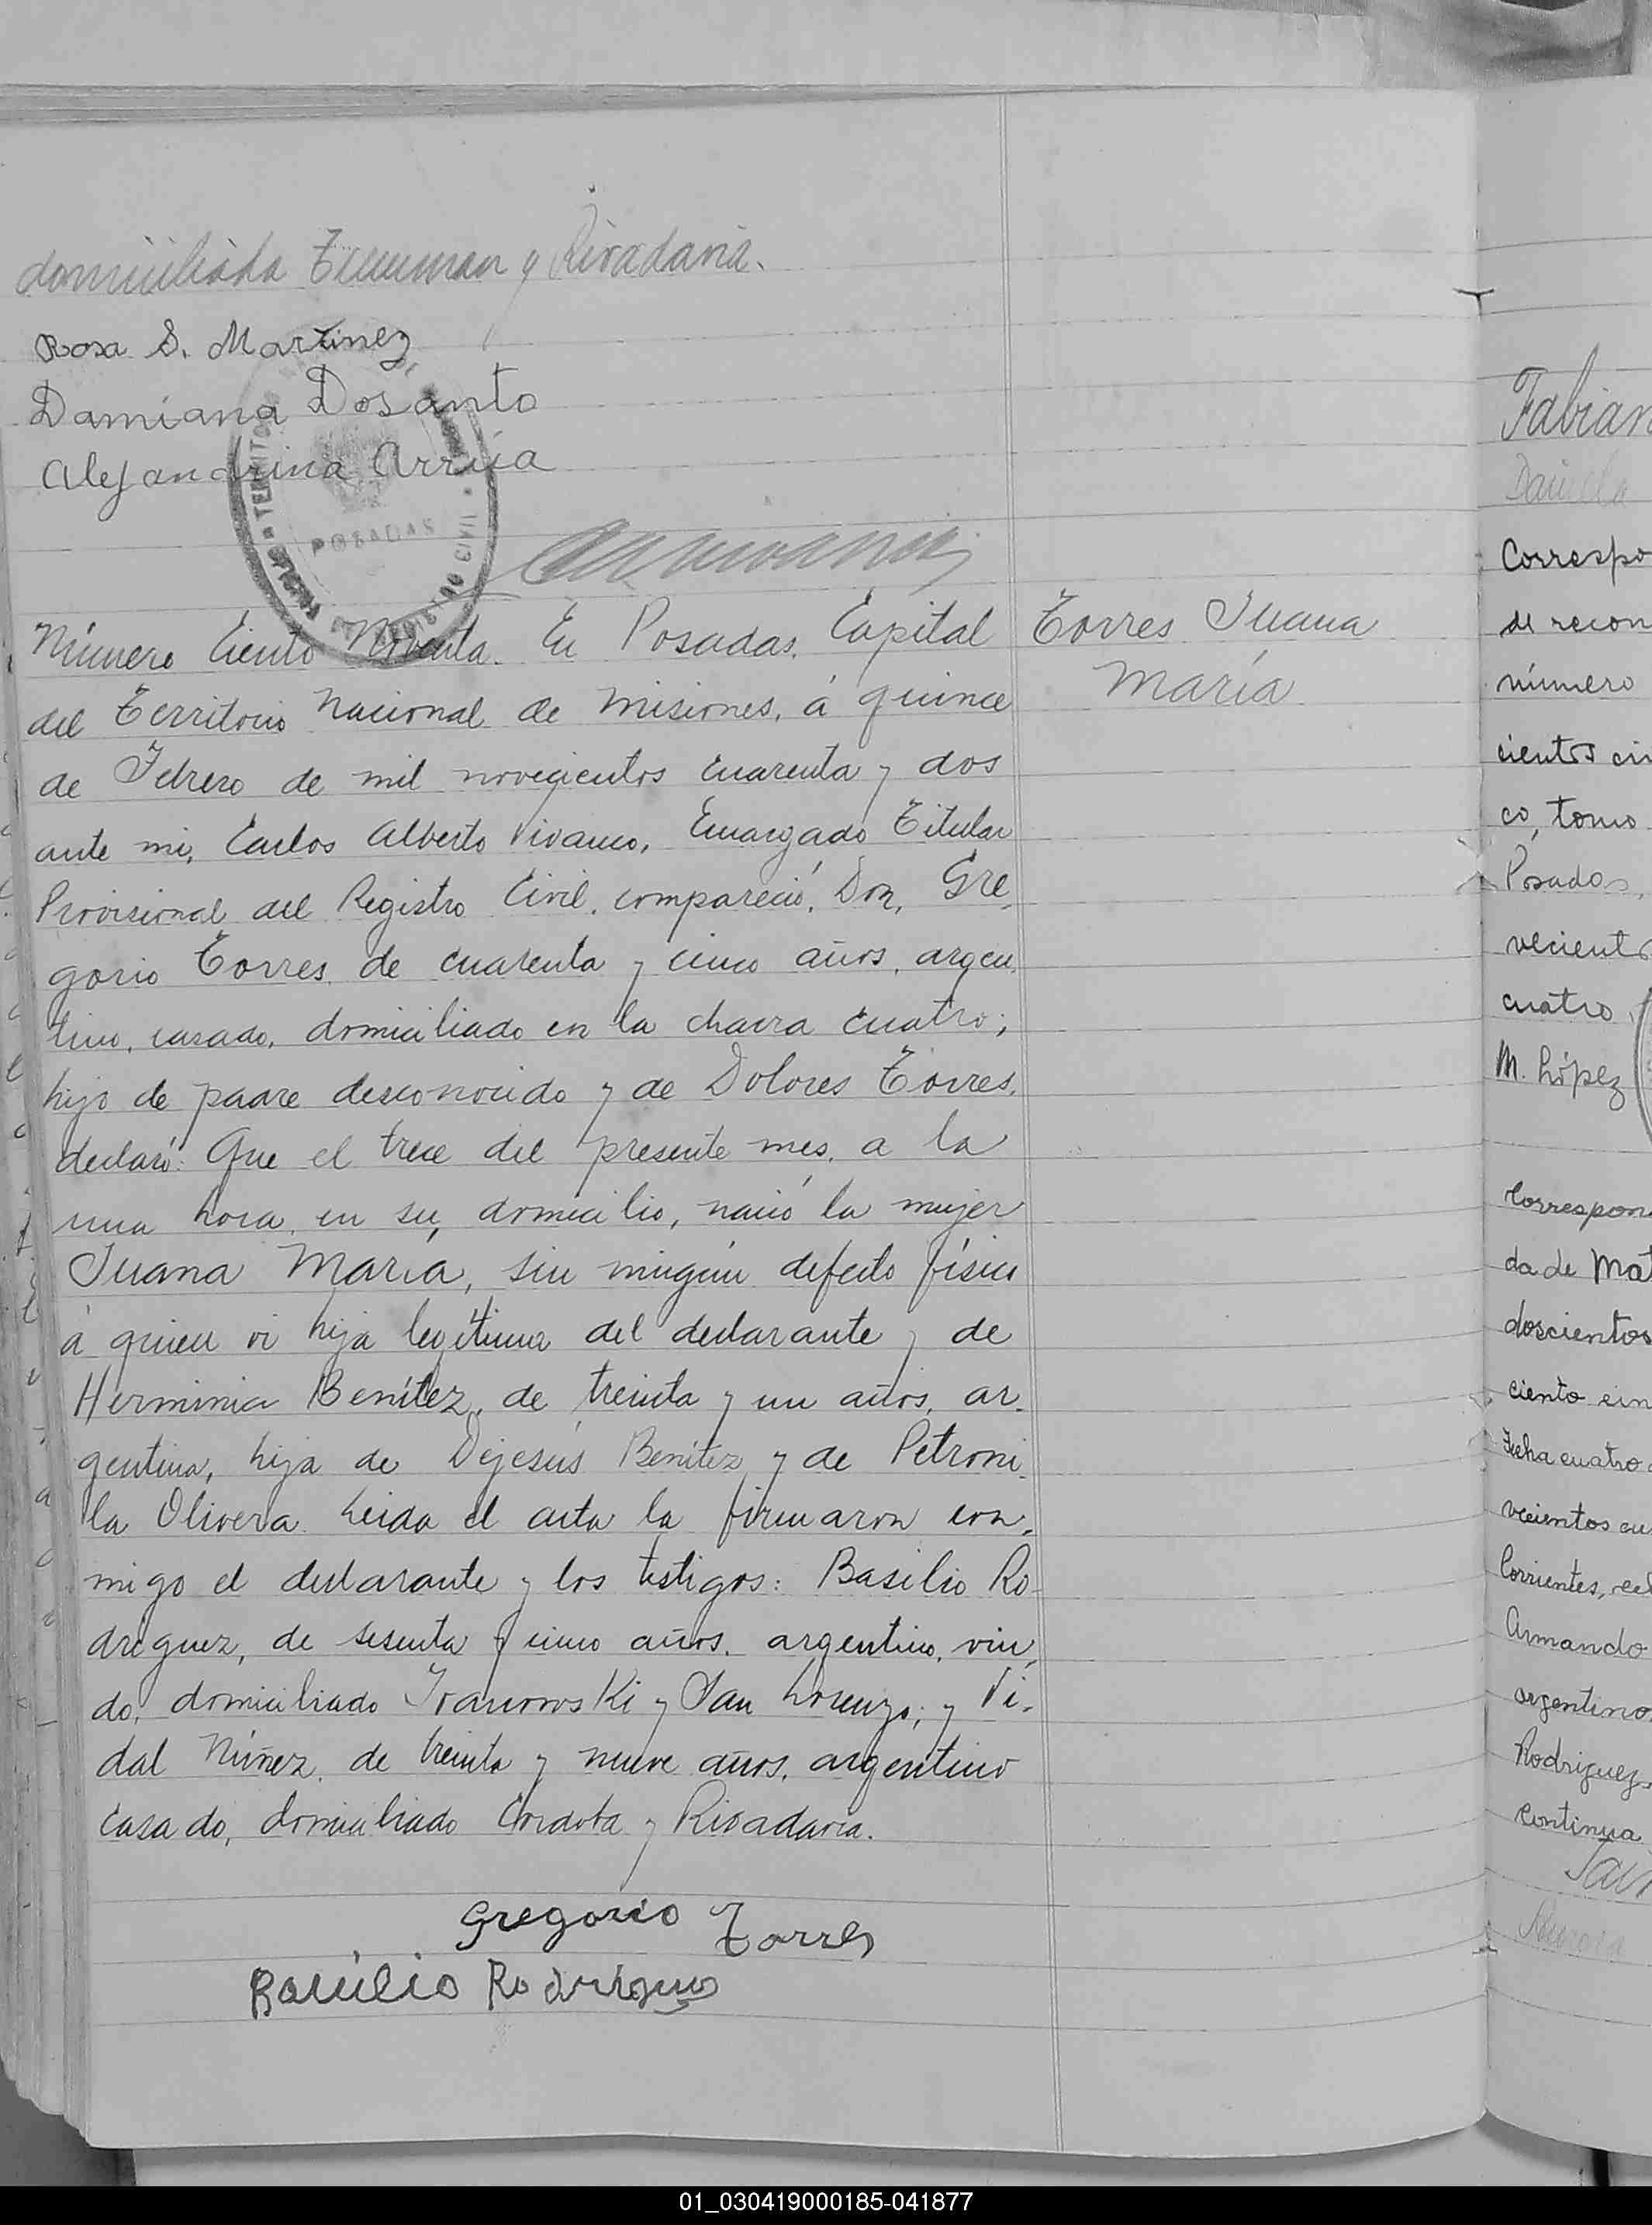 domiciliada Tucuman y Rivadavia.
Rosa S. Martinez
Damiana Dosanto
Alejandrina Arrúa
POSADAS
Número Ciento Noventa. En Posadas, Capital
del Territorio Nacional de Misiones, á quince
de Febrero de mil novecientos cuarenta y dos
ante mi, Carlos Alberto Vivanco, Encargado Titular
Provisional del Registro Civil, compareció, Don, Gre-
gorio Torres de cuarenta y cinco años, argen-
tino, casado, domiciliado en la chacra cuatro;
hijo de padre desconocido y de Dolores Torres,
declaró: Que el trece del presente mes, a la
una hora, en su domicilio, nació la mujer
Juana María, sin ningún defecto físico
á quien vi hija legítima del declarante y de
Herminia Benítez, de treinta y un años, ar-
gentina, hija de Dejesús Benítez y de Petroni-
la Olivera. Leida el acta la firmaron con-
migo el declarante y los testigos: Basilio Ro-
driguez, de sesenta y cinco años, argentino, viu-
do, domiciliado y San Lorenzo; y Vi-
dal Núñez, de treinta y nueve años, argentino
casado, domiciliado Cordoba y Rivadavia.
Gregorio Torres
Basilio Rodriguez
Torres Juana
María
Fabian
Correspo
de recon
número
cientos cin
co, tomo
Posadas,
vecientos
cuatro
M. López
Correspon
da de Mat
doscientos
ciento cin
Fecha cuatro
vecientos cu
Corrientes,
Armando
argentino
Rodriguez
Continua
01_030419000185-041877